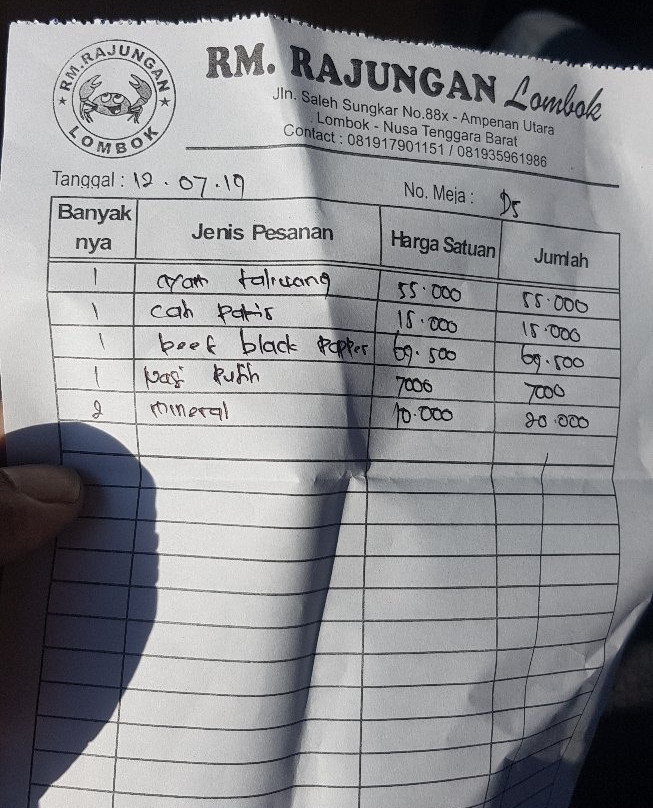 RM. RAJUNGAN
LOMBOK
RM. RAJUNGAN Lombok
Jln. Saleh Sungkar No.88x - Ampenan Utara
Lombok - Nusa Tenggara Barat
Contact : 081917901151 / 081935961986
Tanggal : 12 . 07 . 19 No. Meja : D5
Banyak nya Jenis Pesanan Harga Satuan Jumlah
1 ayam taliwang 55.000 55.000
1 cah paris 15.000 15.000
1 beef black papper 69.500 69.500
1 nasi putih 7000 7000
2 mineral 10.000 20.000